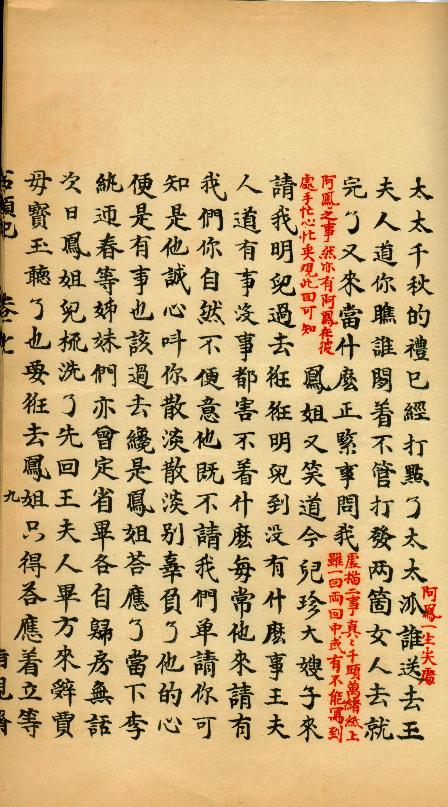 太太千秋的禮已經打點了太太派誰送去王
阿鳳一生尖處
夫人道你瞧誰閒着不管打發兩箇女人去就
完了又來當什麽正緊事問我
虛描二事真〻千頭萬緒紙上
雖一回兩回中或有不能寫到
阿鳳之事然亦有阿鳳在彼
處手忙心忙矣觀此回可知
鳳姐又笑道今兒珍大嫂子來
請我明兒過去俇俇明兒到没有什麽事王夫
人道有事没事都害不着什麽每常他來請有
我們你自然不便意他既不請我們单請你可
知是他誠心呌你散淡散淡别辜負了他的心
便是有事也該過去纔是鳳姐荅應了當下李
紈迎春等姊妹們亦曾定省畢各自歸房無話
次日鳳姐兒梳洗了先回王夫人畢方來辭賈
母寳玉聽了也要俇去鳳姐只得荅應着立等
石頭記 卷七 九